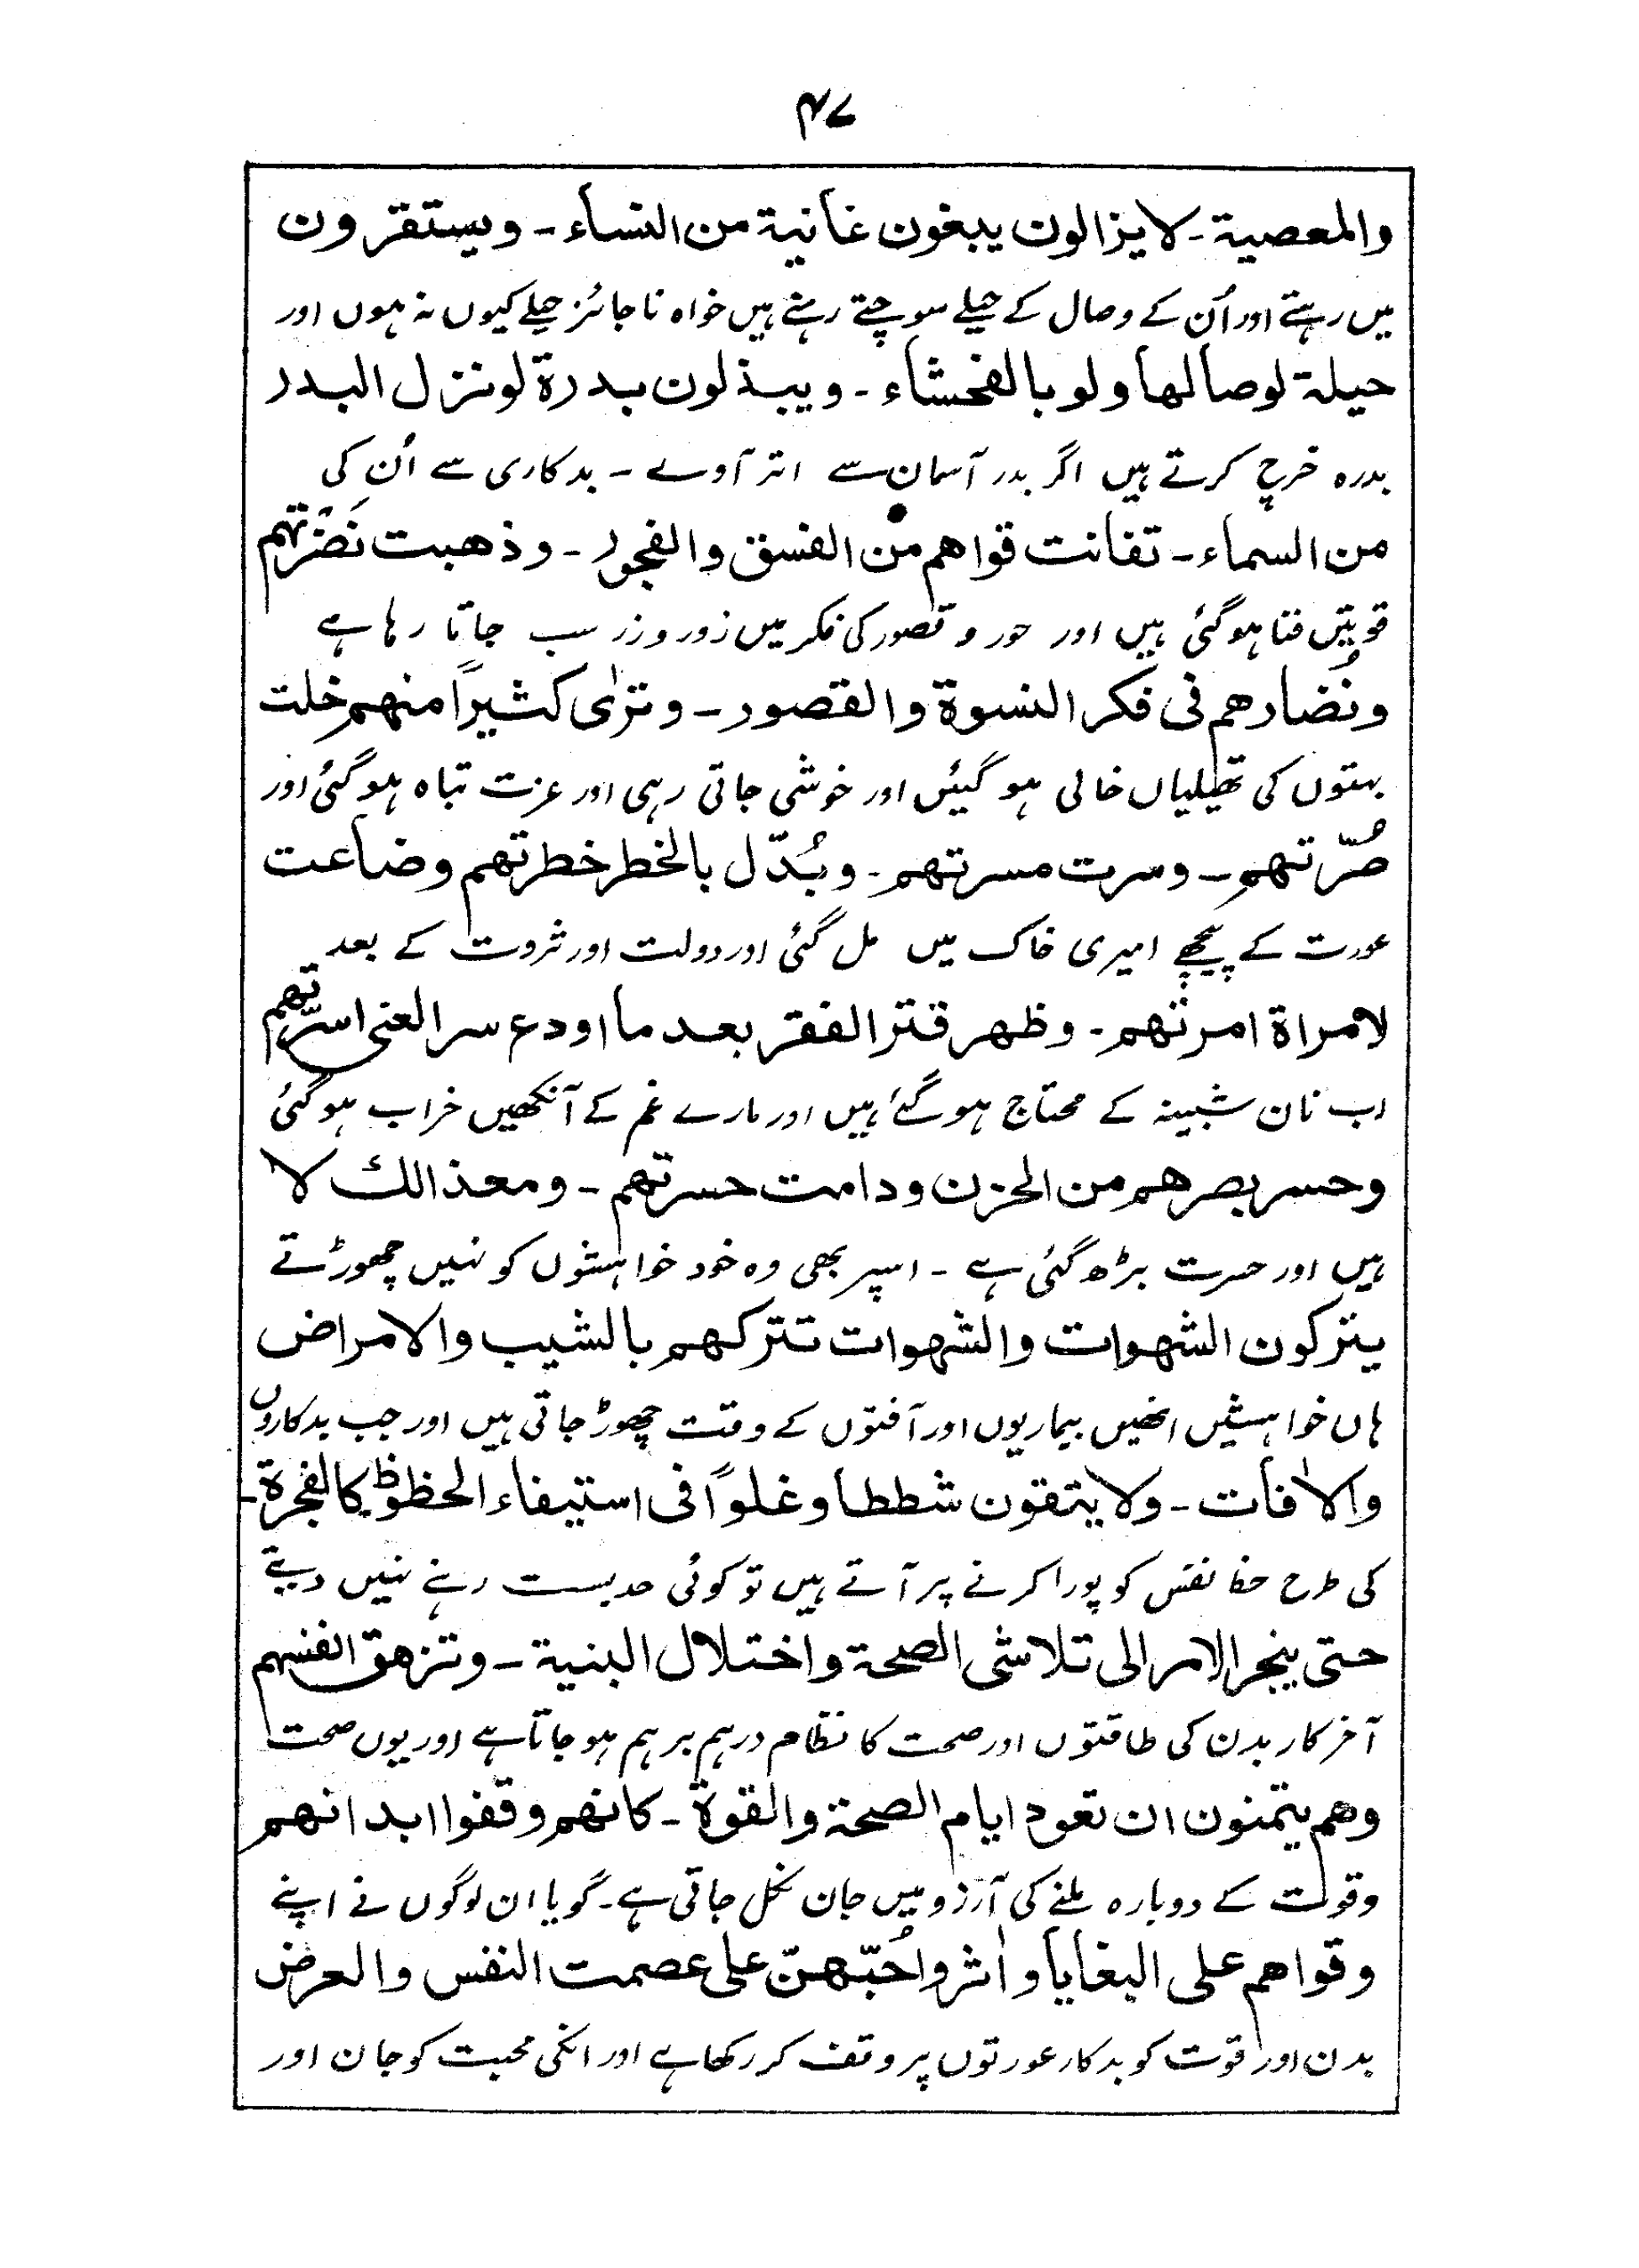 ۴۷
والمعصیة۔ لایزالون یبغون غانیة من النساء۔ ویستقرون
میں رہتے اور اُن کے وصال کے حیلے سوچتے رہتے ہیں خواہ ناجائز حیلے کیوں نہ ہوں اور
حیلة لوصالها ولو بالفحشاء۔ ویبذلون بدرة لو نزل البدر
بدرہ خرچ کرتے ہیں اگر بدر آسمان سے اتر آوے ۔ بدکاری سے اُن کی
من السماء۔ تفانت قواهم من الفسق والفجور۔ وذهبت نَضْرَتهم
قوتیں فنا ہوگئی ہیں اور حور و قصور کی فکر میں زور و زر سب جاتا رہا ہے
ونُضارهم فی فکر النسوة والقصور۔ وترٰی کثیرًا منهم خلت
بہتوں کی تھیلیاں خالی ہو گئیں اور خوشی جاتی رہی اور عزت تباہ ہو گئی اور
صُرّتهم۔ وسرت مسرتهم۔ وبُدّل بالخطر خطرتهم وضاعت
عورت کے پیچھے امیری خاک میں مل گئی اور دولت اور ثروت کے بعد
لامراة امرتهم۔ وظهر قتر الفقر بعد ما اودع سر الغنی اسرّتهم
اب نان شبینہ کے محتاج ہوگئے ہیں اور مارے غم کے آنکھیں خراب ہو گئی
وحسر بصرهم من الحزن ودامت حسرتهم۔ ومعذالك لا
ہیں اور حسرت بڑھ گئی ہے ۔ اسپر بھی وہ خود خواہشوں کو نہیں چھوڑتے
یترکون الشهوات والشهوات تترکهم بالشیب والامراض
ہاں خواہشیں انھیں بیماریوں اور آفتوں کے وقت چھوڑ جاتی ہیں اور جب بدکاروں
والاٰفات۔ ولا یتقون شططا وغلوًا فی استیفاء الحظوظ کالفجرة۔
کی طرح حظ نفس کو پورا کرنے پر آتے ہیں تو کوئی حد بست رہنے نہیں دیتے
حتی ینجر الامر الی تلاشی الصحة واختلال البنیة۔ وتزهق انفسهم
آخر کار بدن کی طاقتوں اور صحت کا نظام درہم برہم ہو جاتا ہے اور یوں صحت
وهم یتمنون ان تعود ایام الصحة والقوة۔ کانهم وقفوا ابدانهم
وقوت کے دوبارہ ملنے کی آرزو میں جان نکل جاتی ہے۔ گویا ان لوگوں نے اپنے
وقواهم علی البغایا واٰثروا حُبّهنّ علی عصمت النفس والعرض
بدن اور قوت کو بدکار عورتوں پر وقف کر رکھا ہے اور انکی محبت کو جان اور